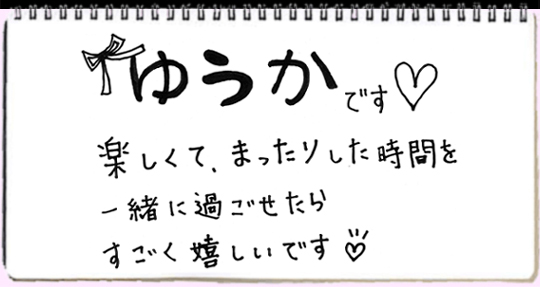 ゆうかです♡
楽しくて、まったりした時間を
一緒に過ごせたら
すごく嬉しいです♡